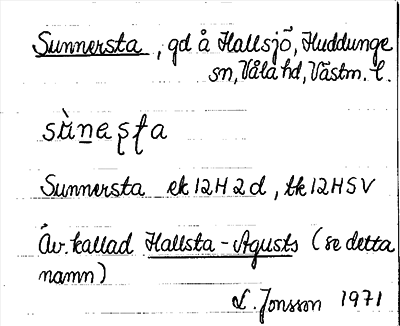 Sunnersta, gd å Hallsjö, Huddunge
sn, Våla hd, Västm. l.
sùnesta
Sunnersta ek 12H2d, tk 12HSV
Äv. kallad Hallsta-Agusts (se detta
namn)
L. Jonsson 1971